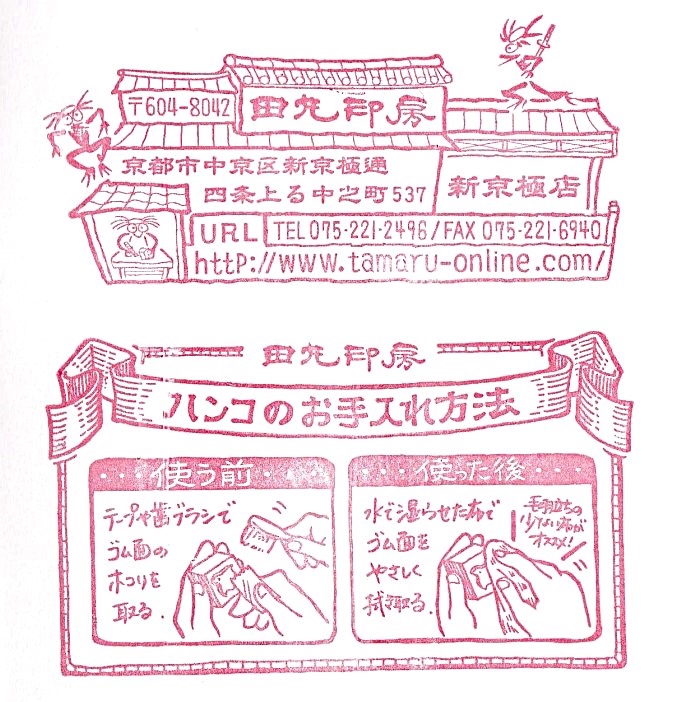 〒604-8042
田丸印房
京都市中京区新京極通
四条上る中之町537
新京極店
URL
TEL 075-221-2496/FAX 075-221-6940
http://www.tamaru-online.com/
田丸印房
ハンコのお手入れ方法
使う前
テープや歯ブラシで
ゴム面の
ホコリを
取る.
使った後
水で湿らせた布で
ゴム面を
やさしく
拭き取る.
毛羽立ちの
少ない布が
オススメ!